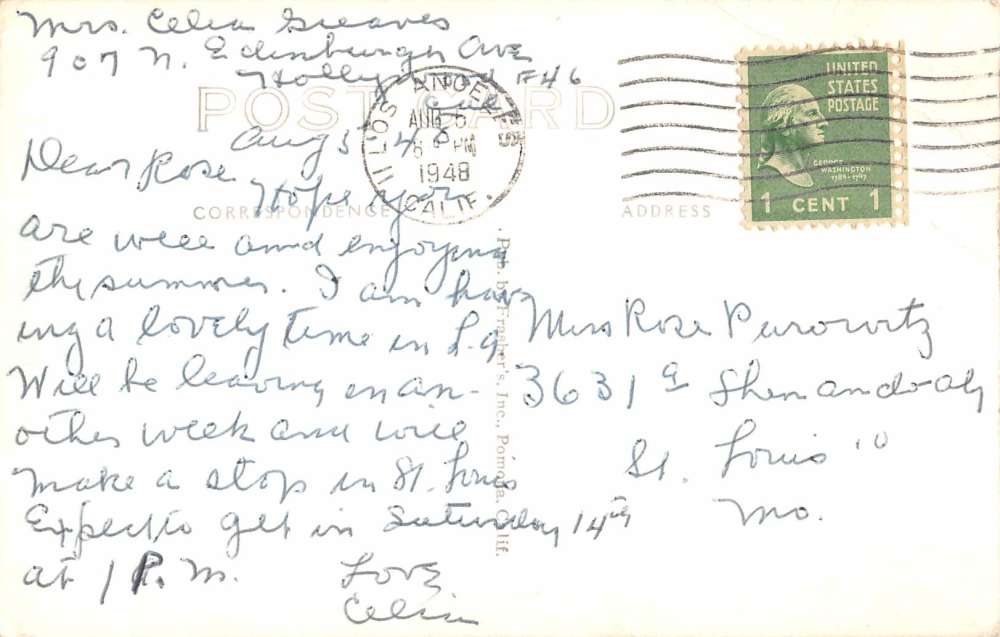 Mrs. Celia Greaves
907 N. Edinburger Ave
Hollywood #46
Cal
POST CARD
LOS ANGELES
AUG 5
PM
1948
CALIF.
11
UNITED
STATES
POSTAGE
GEORGE
WASHINGTON
1789-1797
1 CENT 1
Aug 5 48
Dear Rose
CORRESPONDENCE
ADDRESS
Hope you
are well and enjoying
the summer. I am hav
ing a lovely time in L.A.
Will be leaving in an-
other week and will
make a stop in St. Louis
Expect to get in Saturday 14th
at 1 P.M.
Love
Celia
Pub. by Frasher's, Inc., Pomona, Calif.
Miss Rose Purowitz
3631 a Shenandoah
St. Louis 10
Mo.